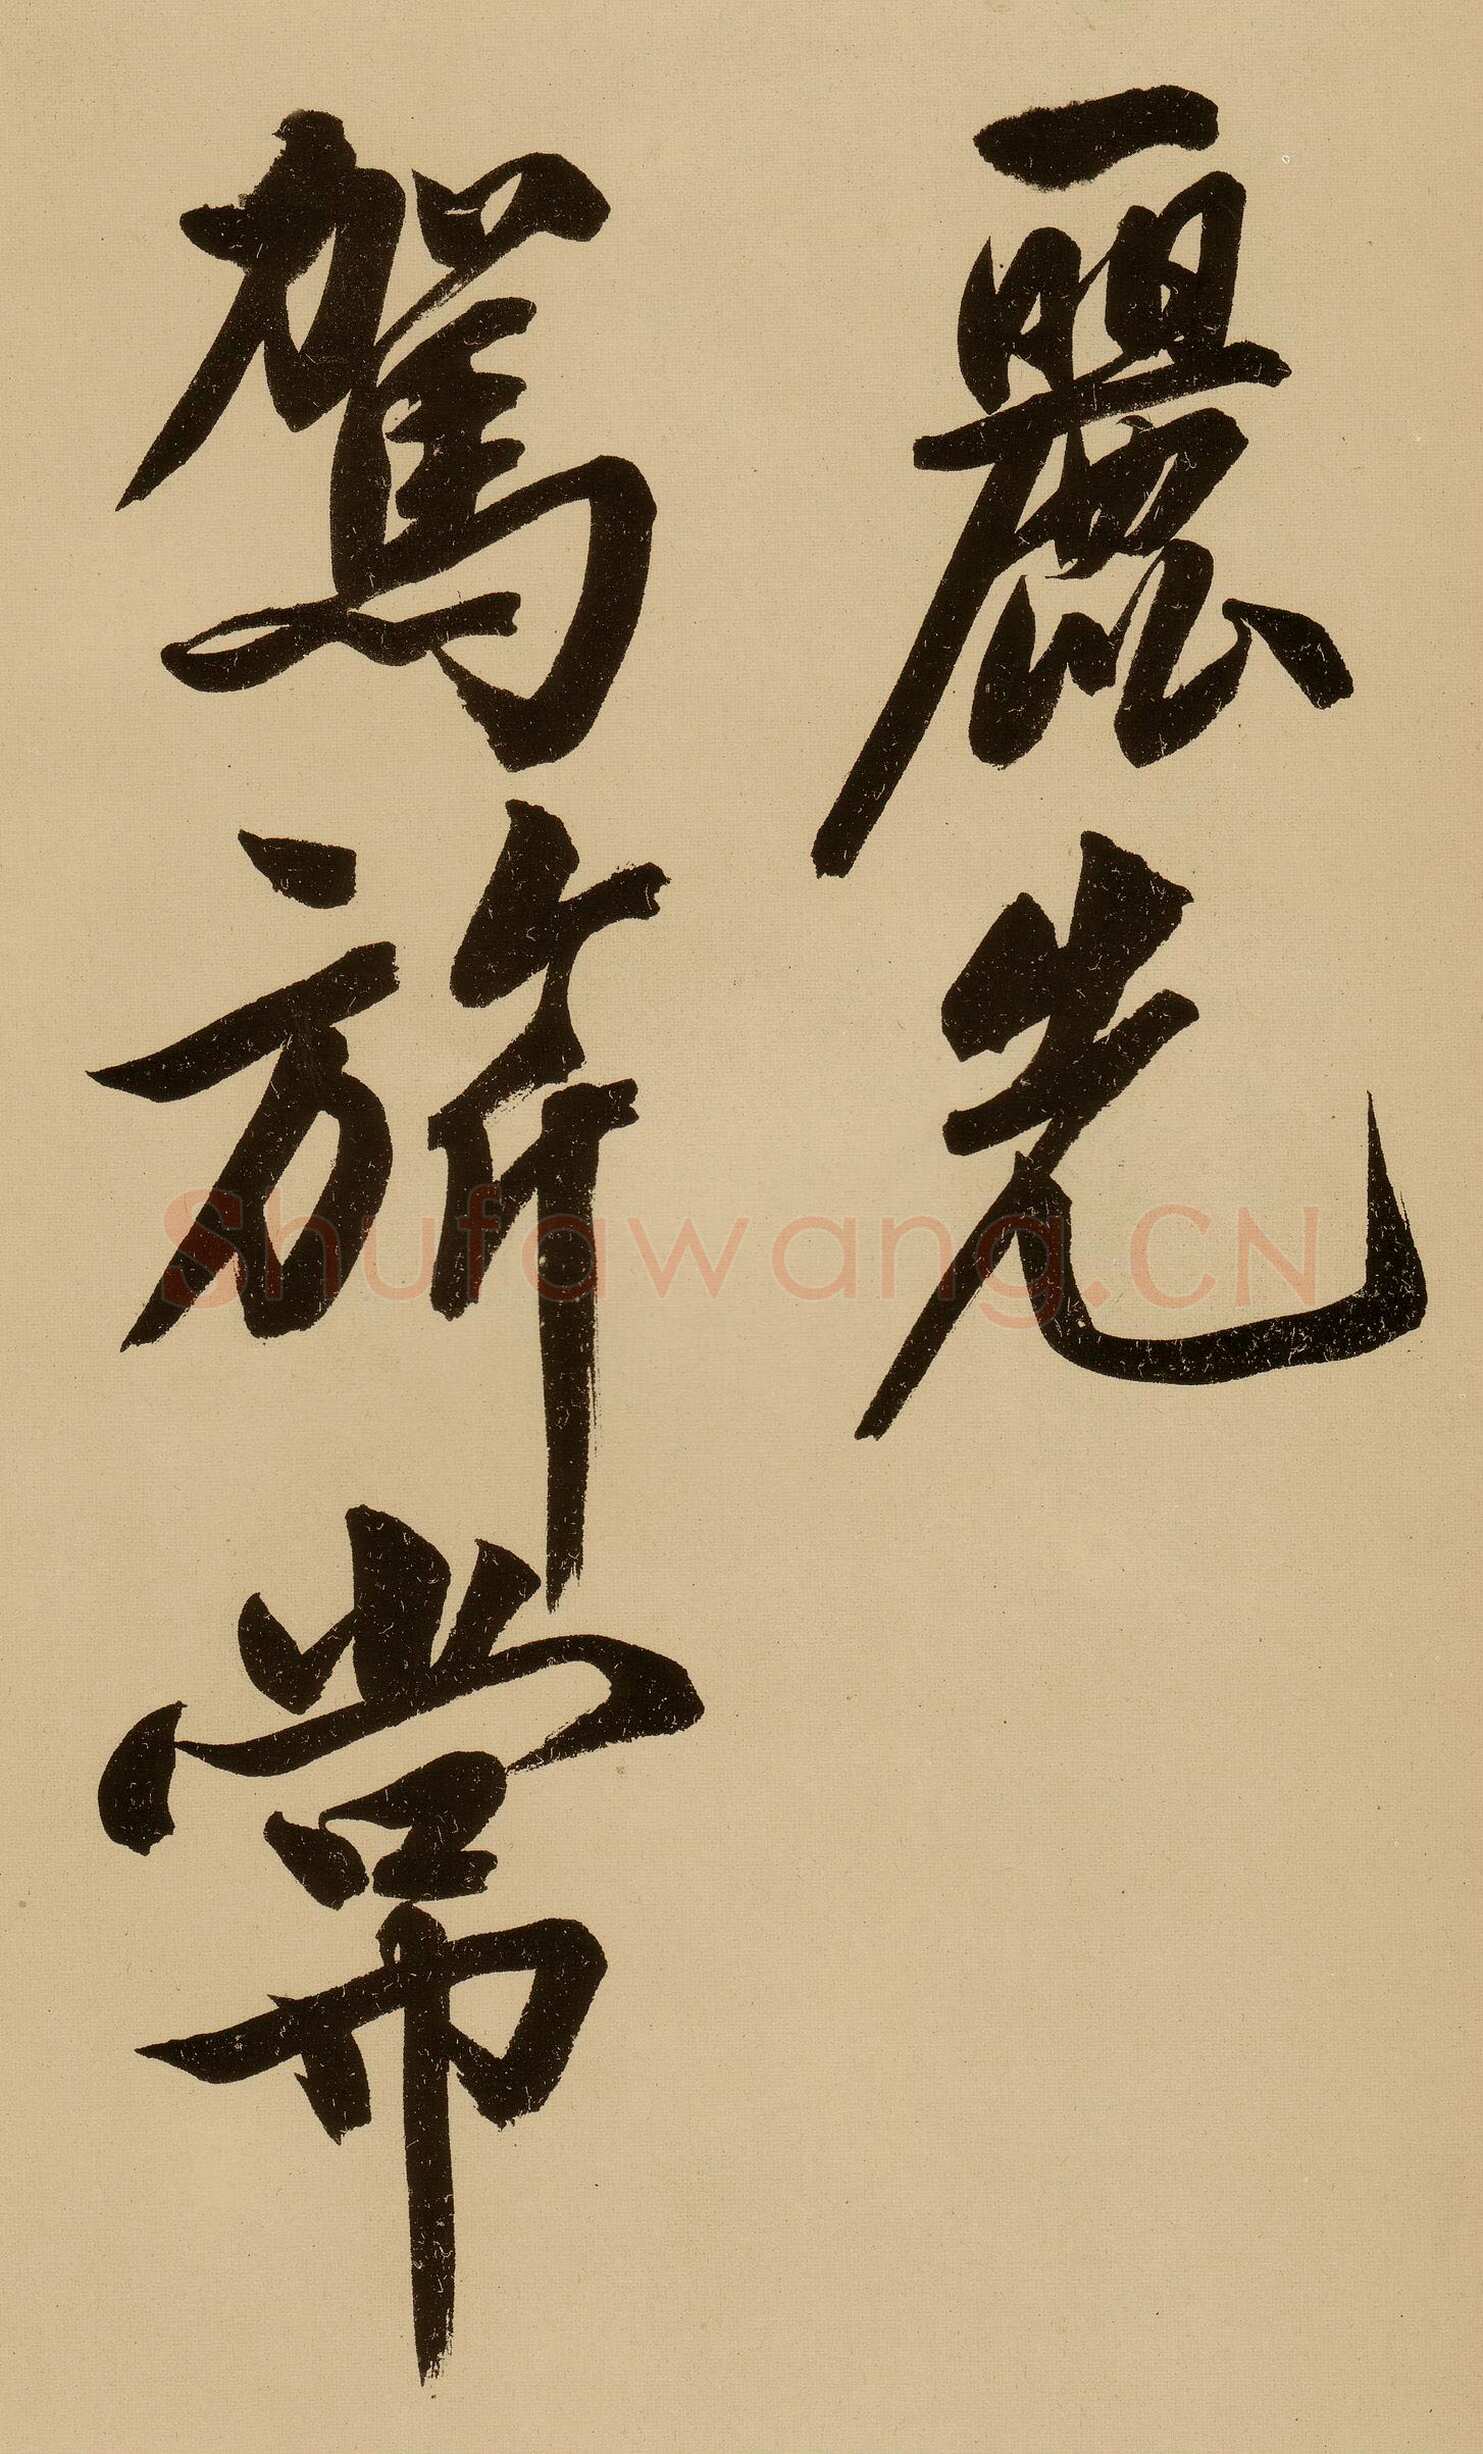 麗先
駕旂常
Shufawang.CN